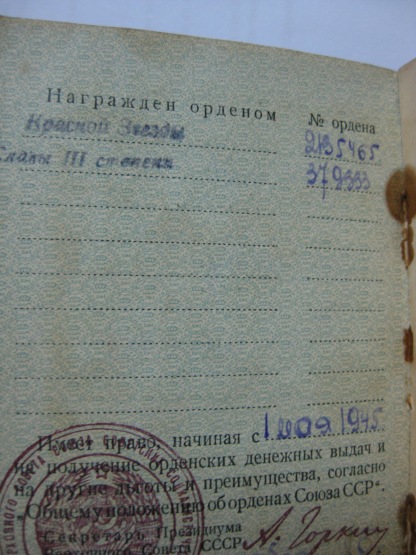 Награжден орденом № ордена
Красной Звезды 2135465
Славы III степени 372333
Имеет право, начиная с 1 мая 1945
на получение орденских денежных выдач и
на другие льготы и преимущества, согласно
„Общему положению об орденах Союза ССР“.
Секретарь Президиума
Верховного Совета СССР А. Горкин